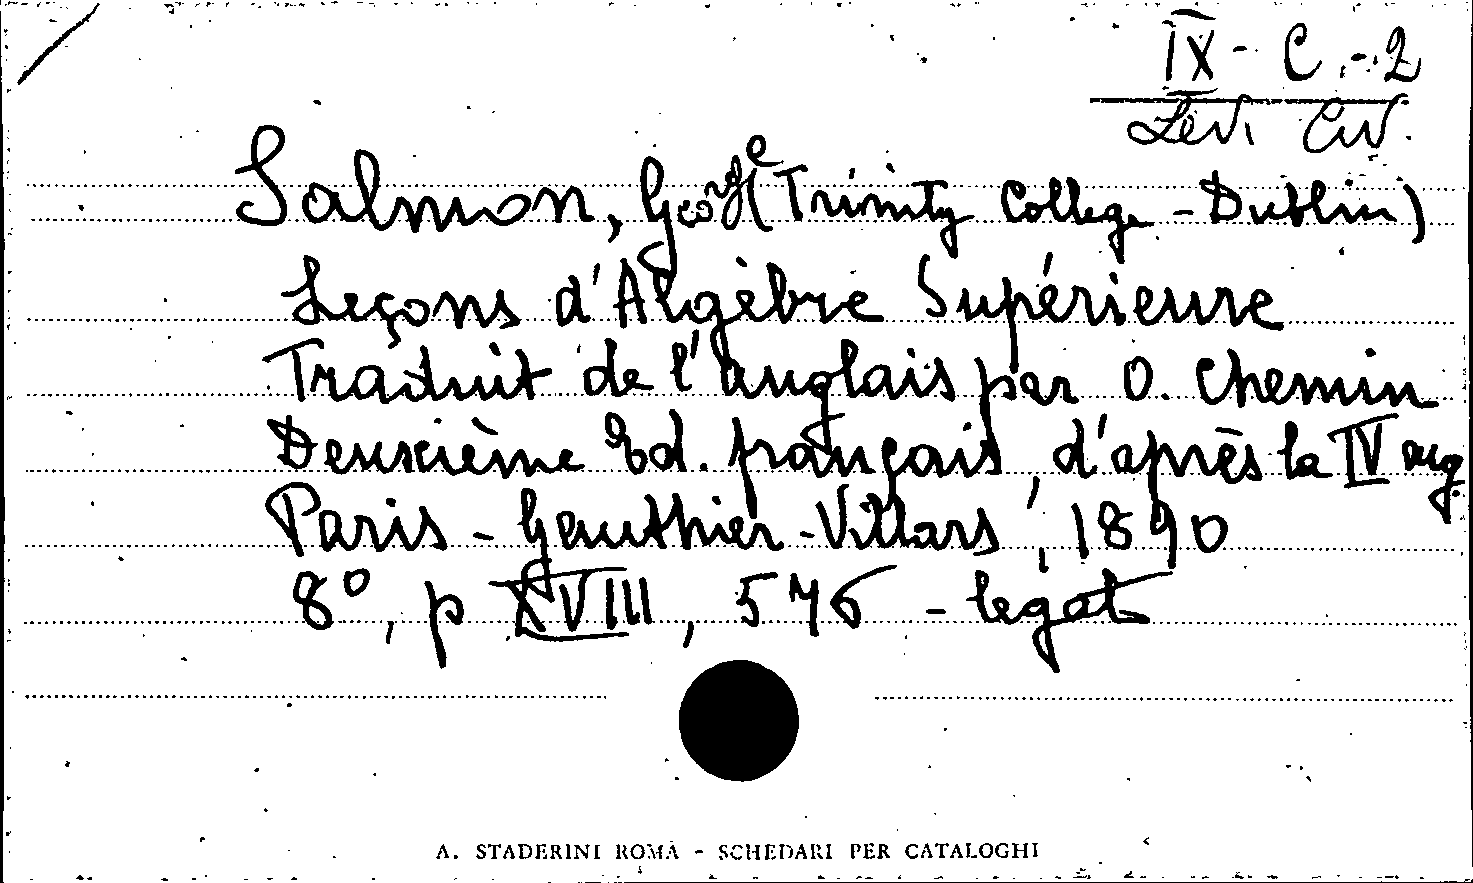 IX - C - 2
Levi Civ.
Salmon, George (Trinity College - Dublin)
Leçons d'Algèbre Supérieure
Traduit de l'anglais par O. Chemin
Deuxième Ed. français, d'après la IV ang.
Paris - Gauthier-Villars, 1890
8º, p XVIII, 576 - légat
A. STADERINI ROMA - SCHEDARI PER CATALOGHI